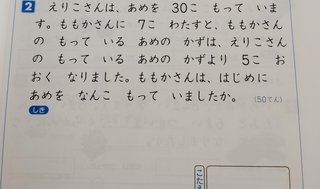 2 えりこさんは、あめを 30こ もって いま
す。ももかさんに 7こ わたすと、ももかさん
の もって いる あめの かずは、えりこさん
の もって いる あめの かずより 5こ お
おく なりました。ももかさんは、はじめに
あめを なんこ もって いましたか。
(50てん)
しき
こたえ